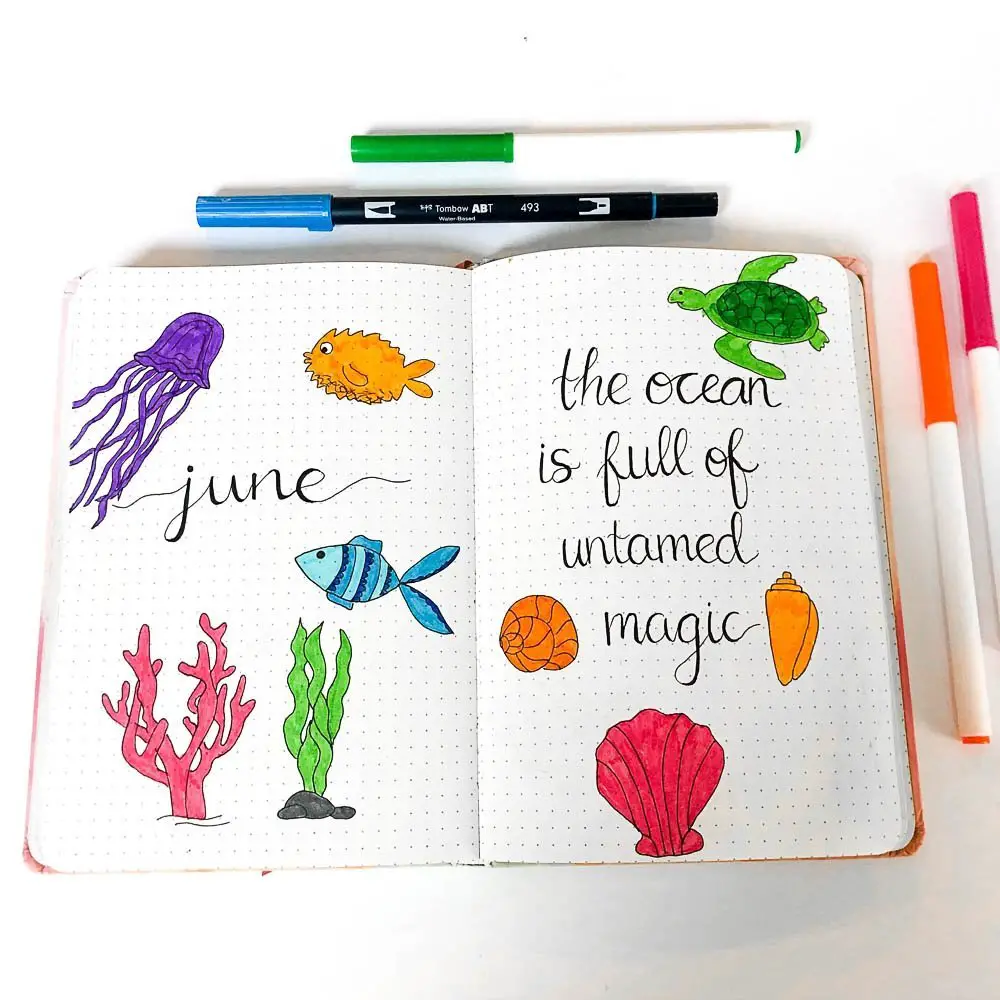 Tombow ABT 493
Water-Based
june
the ocean
is full of
untamed
magic